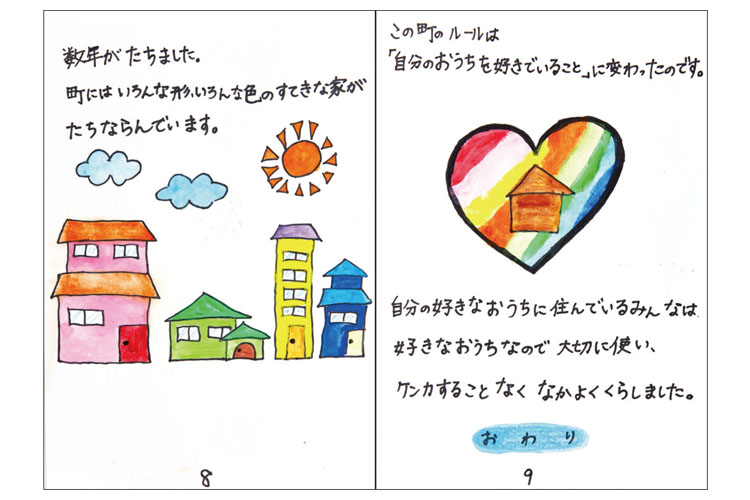 数年が たちました。
町には いろんな形、いろんな色のすてきな家が
たちならんでいます。
8
この町の ルールは
「自分のおうちを好きでいること」に変わったのです。
自分の好きなおうちに住んでいるみんなは
好きなおうちなので 大切に使い、
ケンカすること なく なかよくくらしました。
おわり
9